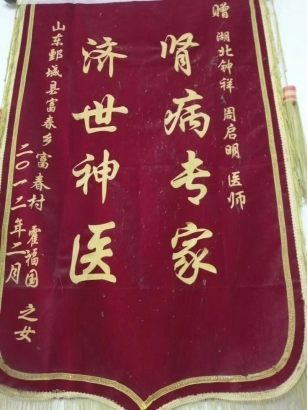 赠 湖北钟祥 周启明 医师
肾病专家
济世神医
山东鄄城县富春乡富春村 霍福国 之女
二〇一二年二月